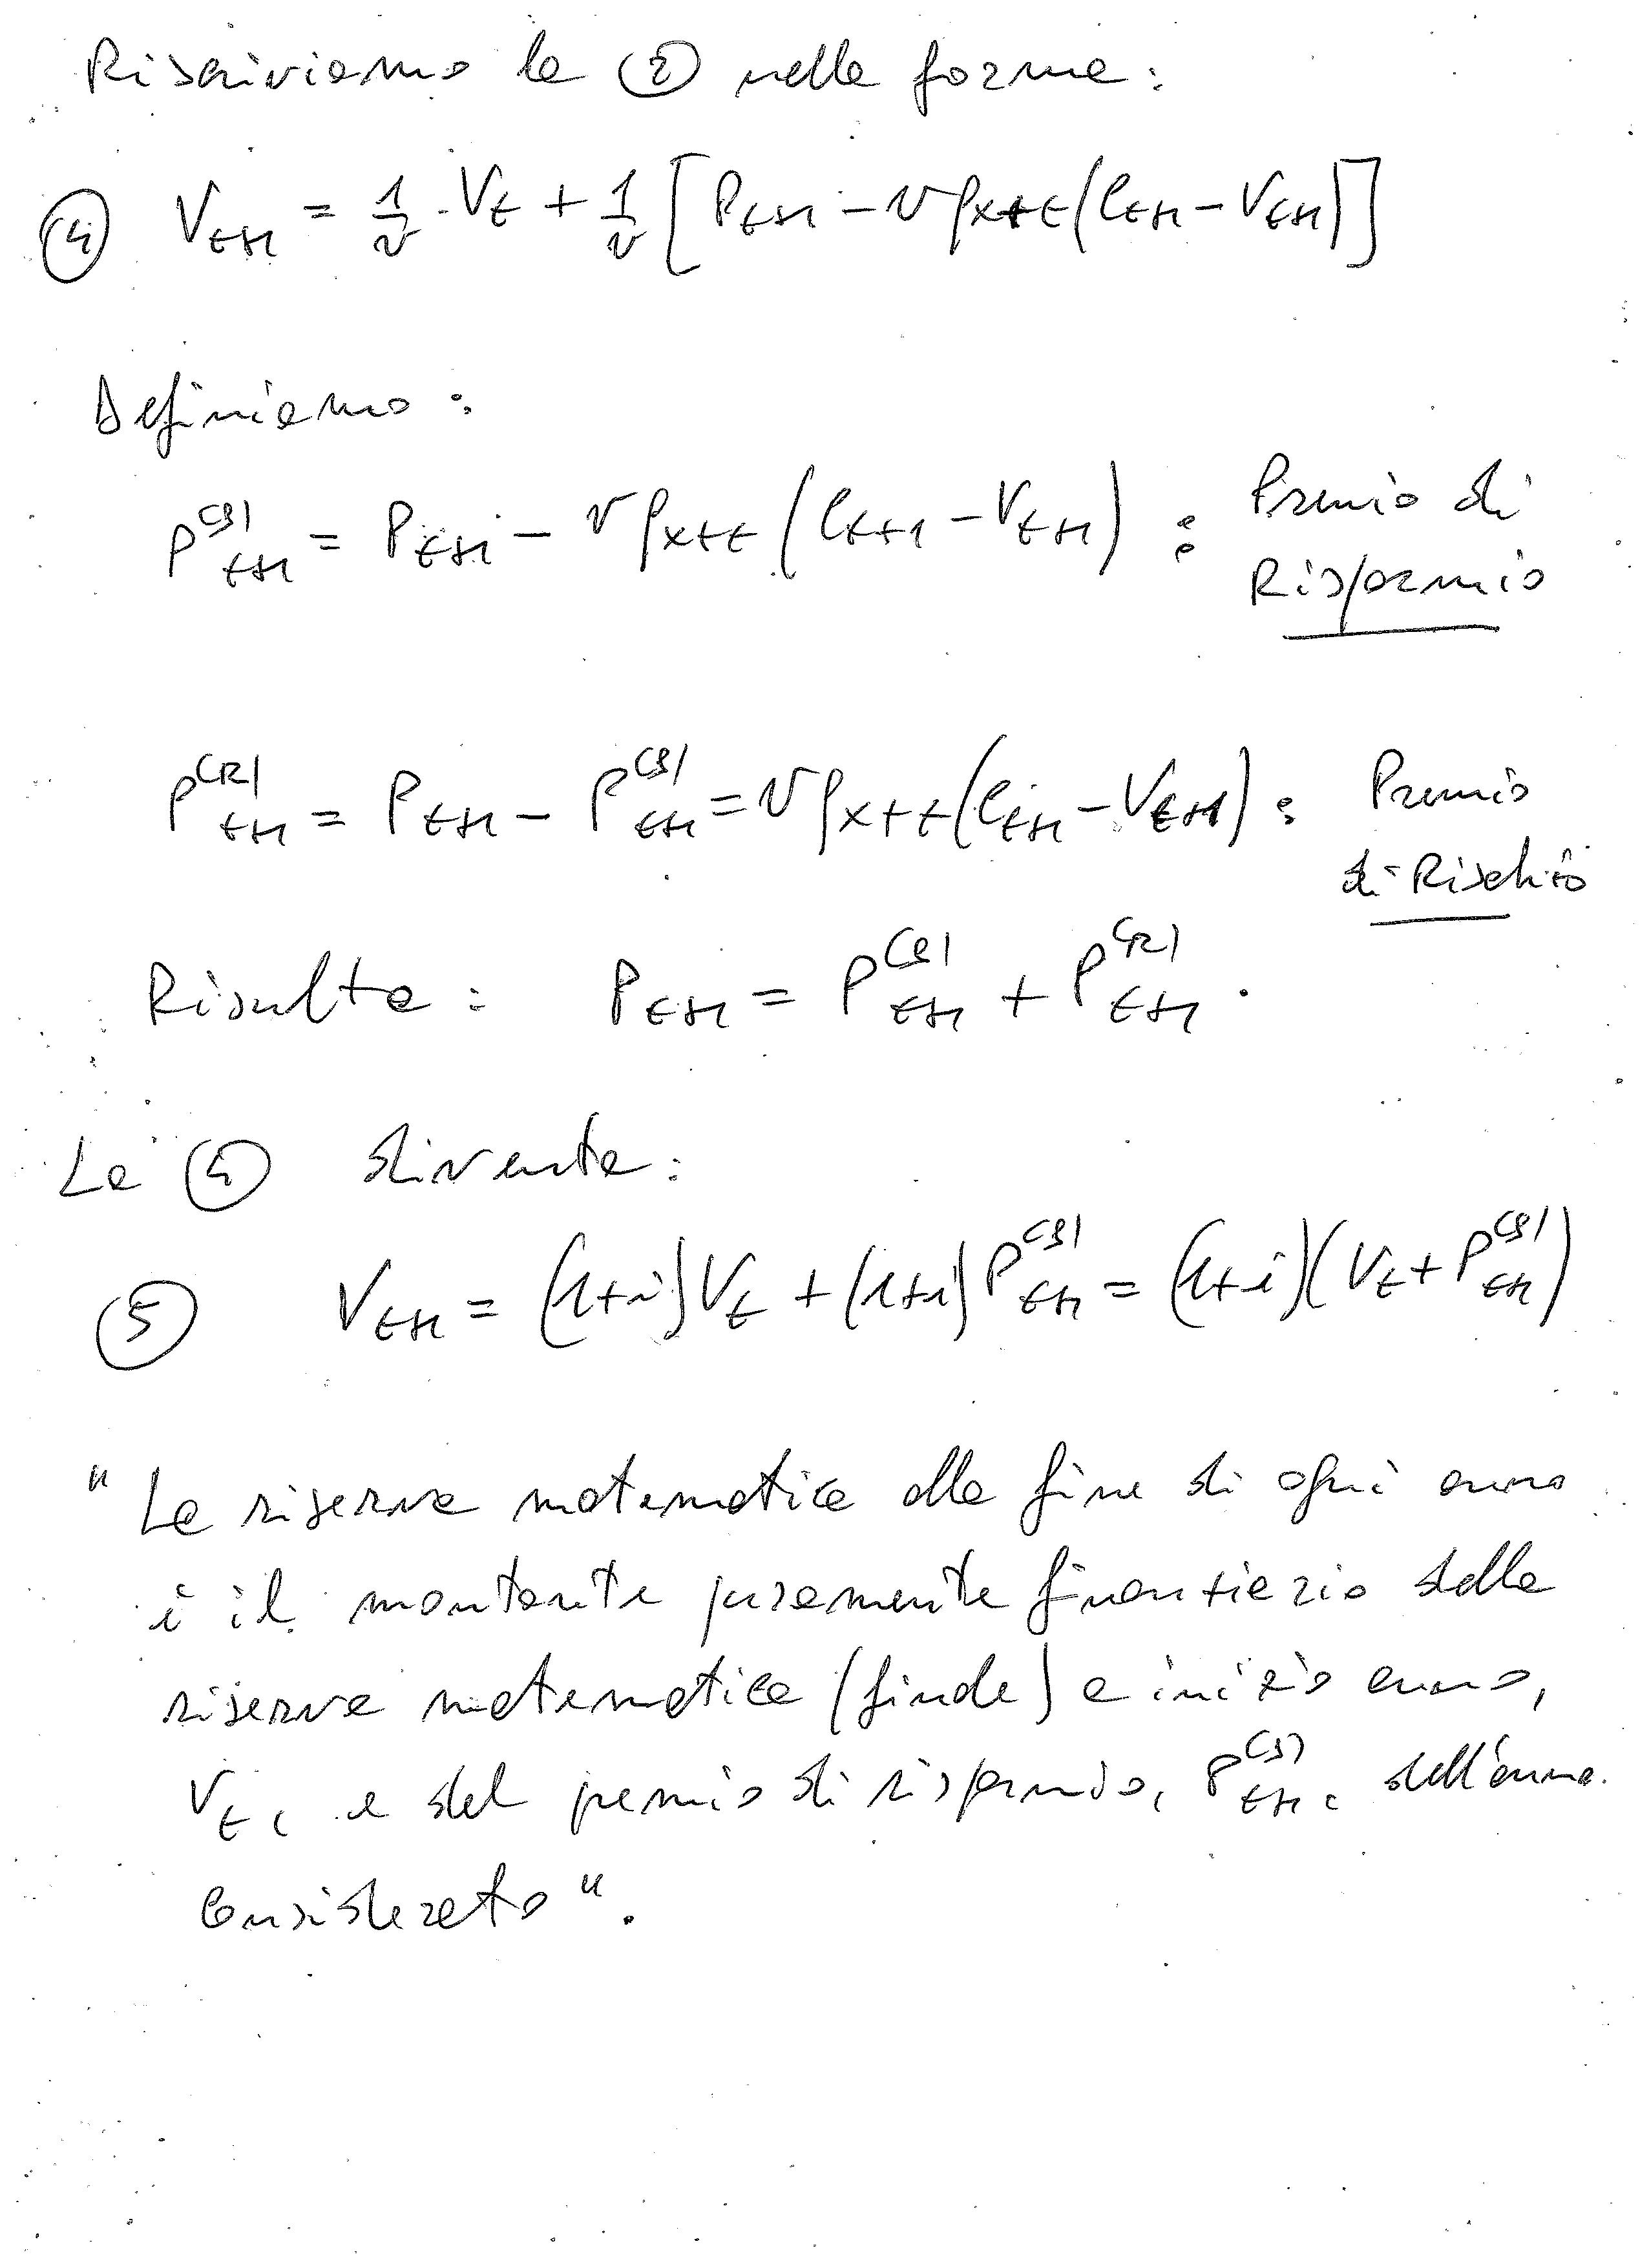 Riscriviamo la ② nella forma:
④ V_{t+1} = 1/v · V_t + 1/v [P_{t+1} - v q_{x+t} (C_{t+1} - V_{t+1})]
Definiamo:
P^{(S)}_{t+1} = P_{t+1} - v q_{x+t} (C_{t+1} - V_{t+1}) : Premio di
Risparmio
P^{(R)}_{t+1} = P_{t+1} - P^{(S)}_{t+1} = v q_{x+t} (C_{t+1} - V_{t+1}) : Premio
di Rischio
Risulta: P_{t+1} = P^{(S)}_{t+1} + P^{(R)}_{t+1} .
La ④ diventa:
⑤ V_{t+1} = (1+i) V_t + (1+i) P^{(S)}_{t+1} = (1+i)(V_t + P^{(S)}_{t+1})
"La riserva matematica alla fine di ogni anno
è il montante puramente finanziario della
riserva matematica (finale) a inizio anno,
V_t, e del premio di risparmio, P^{(S)}_{t+1}, dell'anno
considerato".